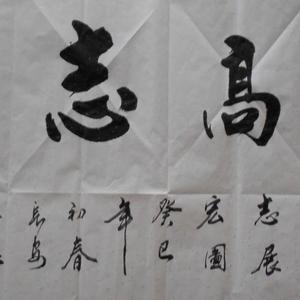 高志
志展
宏圖
癸巳
年
初春
長安